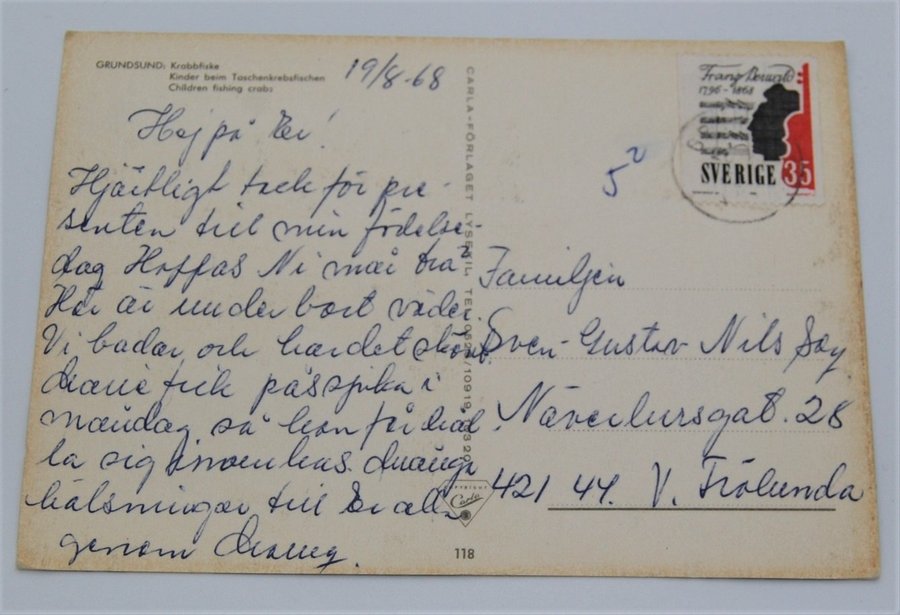 GRUNDSUND: Krabbfiske
Kinder beim Taschenkrebsfischen
Children fishing crabs
19/8-68
Hej på Er!
Hjärtligt tack för pre-
senten till min födelse-
dag Hoppas Ni mår bra
Här är underbart väder.
Vi badar och har det skönt
fick påssjuka i
måndag så hon får hål
la sig inomhus.
hälsningar till Er alla
genom
CARLA-FÖRLAGET LYSEKIL TEL. 0523/10919
Carla
118
Franz Berwald
1796-1868
SVERIGE 35
52
Familjen
Sven-Gustav Nils
28
421 44. V. Frölunda